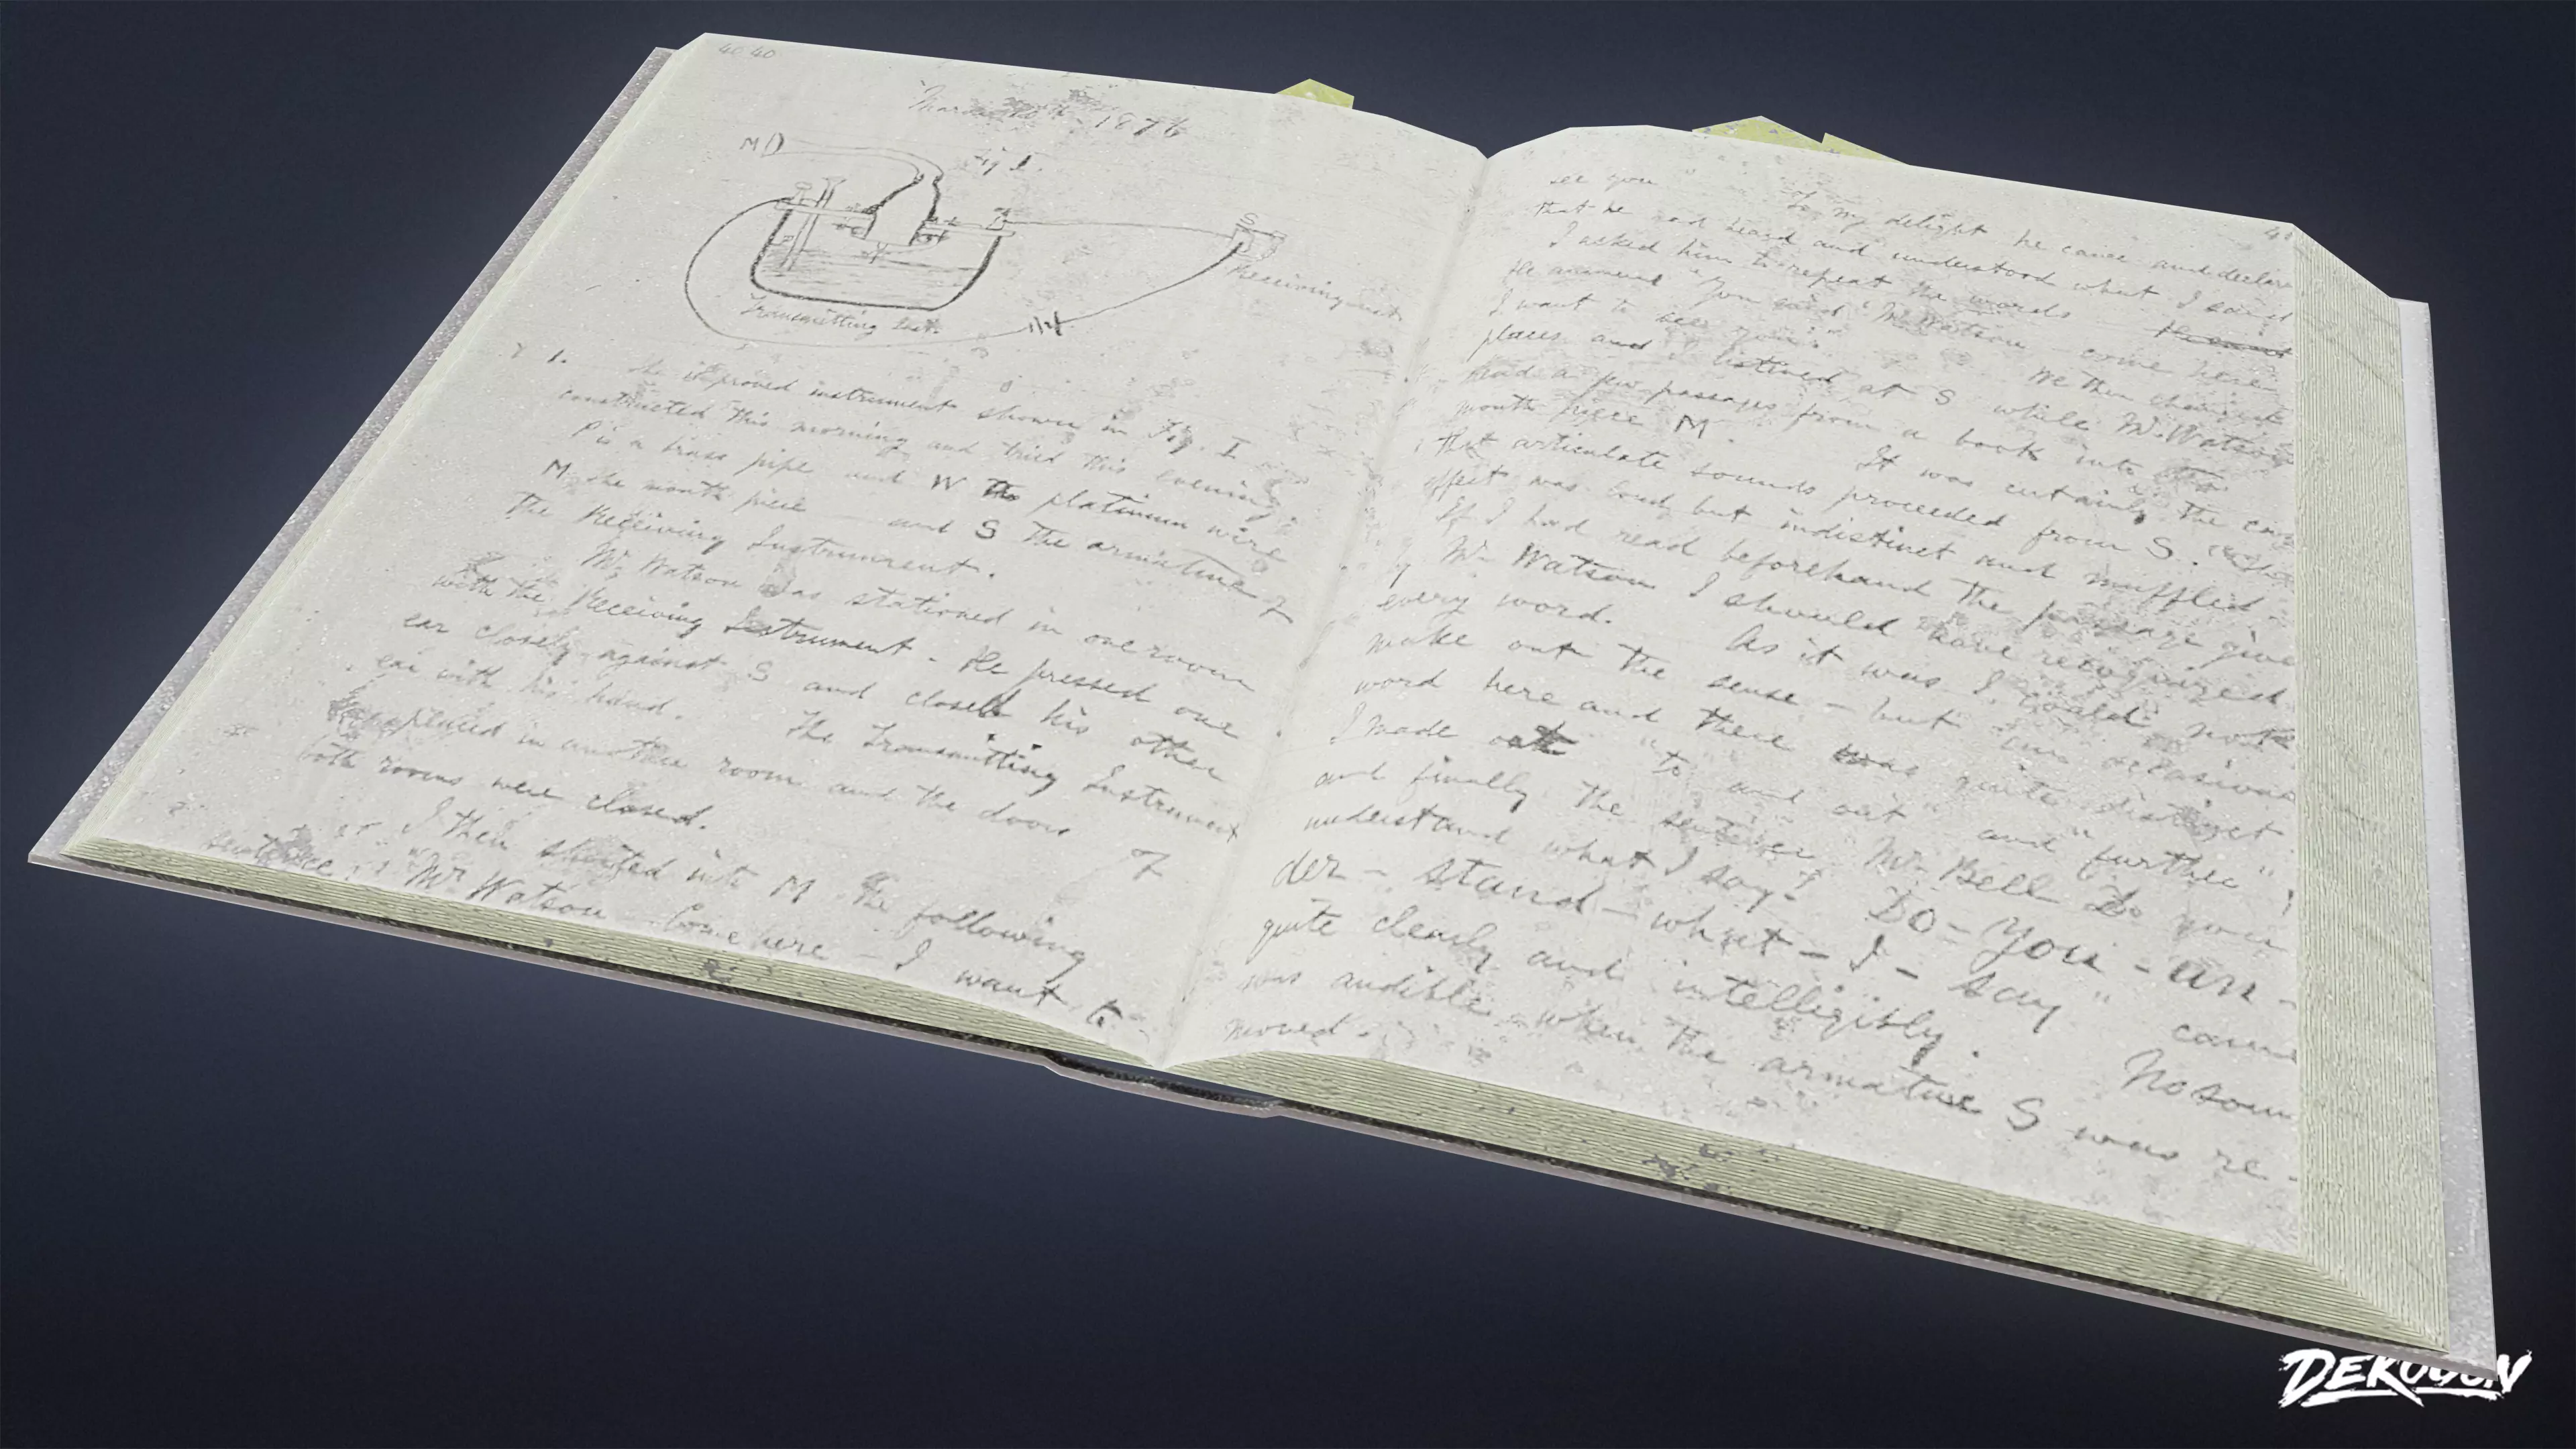 40 40
March 10th 1876
M
Fig 1.
S
Receiving Inst
P
W
Transmitting Inst.
1. The improved instrument shown in Fig. I
constructed this morning and tried this evening.
P is a brass pipe and W the platinum wire
M the mouth piece — and S the armature of
The Receiving Instrument.
Mr. Watson was stationed in one room
with the Receiving Instrument. He pressed one
ear closely against S and closed his other
ear with his hand. The Transmitting Instrument
placed in another room and the doors of
both rooms were closed.
I then shouted into M the following
sentence: "Mr Watson — Come here — I want to
4
see you To my delight he came and declare
that he had heard and understood what I said
I asked him to repeat the words
He answered "You said 'Mr Watson — come here
I want to see you'" We then changed
places and I listened at S while Mr. Watson
read a few passages from a book into the
mouth piece M. It was certainly the ca
that articulate sounds proceeded from S. The
effect was loud but indistinct and muffled.
If I had read beforehand the passage give
by Mr Watson I should have recognized
every word. As it was I could not
make out the sense — but an occasional
word here and there was quite distinct.
I made out "to" and "out" and "further";
and finally the sentence "Mr Bell Do you
understand what I say? Do — you — un -
der — stand — what — I — say" came
quite clearly and intelligibly. No soun
was audible when the armature S was re -
moved.
DEKOGON